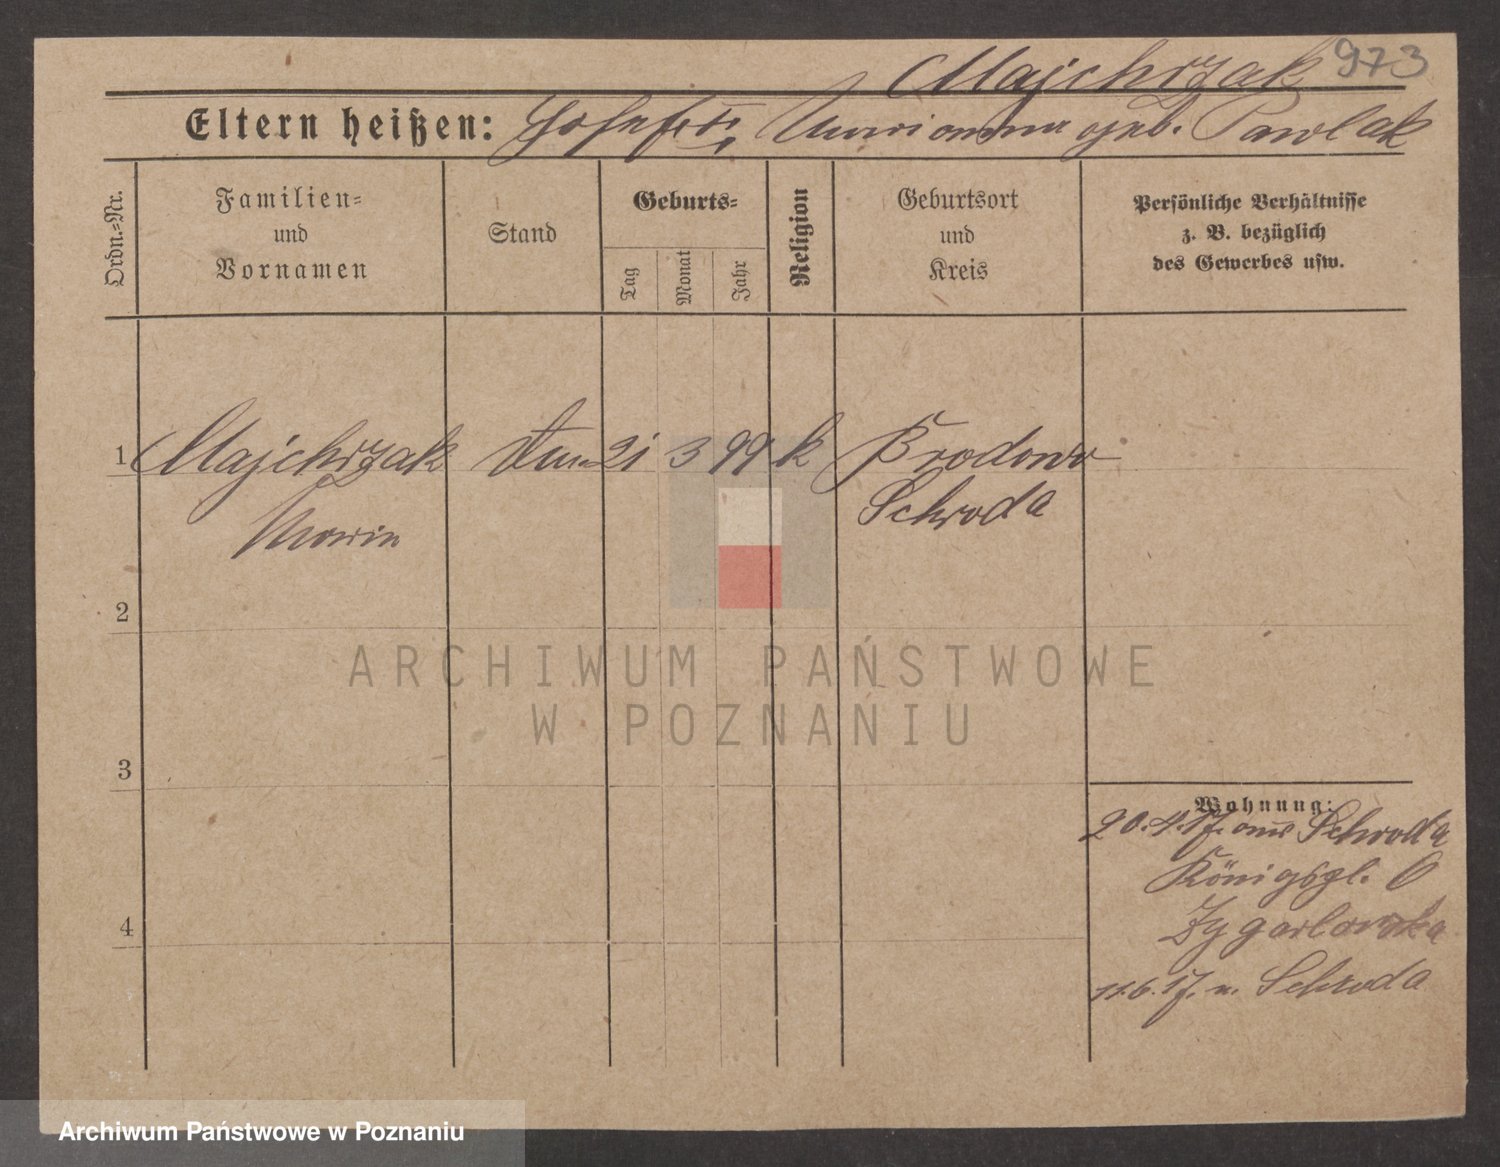 Majchrzak 973
Eltern heißen: Josef u. Marianna geb. Pawlak
Ordn.=Nr.
Familien=
und
Vornamen
Stand
Geburts=
Tag
Monat
Jahr
Religion
Geburtsort
und
Kreis
Persönliche Verhältnisse
z. B. bezüglich
des Gewerbes usw.
1 Majchrzak 21 3 99 k Brodowo
Marie Schroda
2
ARCHIWUM PAŃSTWOWE
W POZNANIU
3
Wohnung:
20.4.17. aus Schroda
Königspl. 6
4
11.6.17. n. Schroda
Archiwum Państwowe w Poznaniu